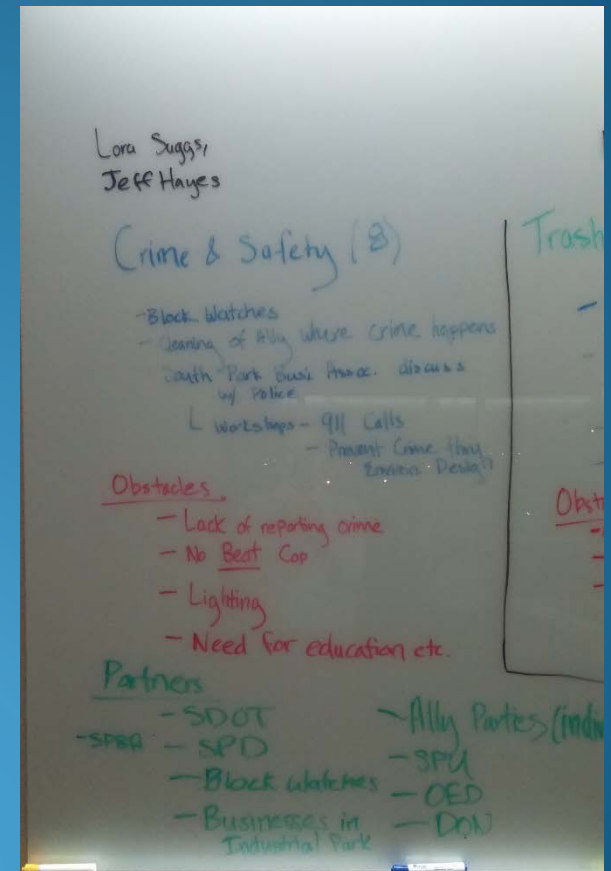 Lora Suggs,
Jeff Hayes
Crime & Safety (8)
- Block Watches
- Cleaning of Ally where crime happens
South Park Busi. Assoc. discuss
w/ Police
Workshops - 911 Calls
- Prevent Crime thru
Environ. Design
Obstacles
- Lack of reporting crime
- No Beat Cop
- Lighting
- Need for education etc.
Partners
- SDOT
- SPBA - SPD
- Block Watches
- Businesses in
Industrial Park
- Ally Parties (indiv
- SPU
- OED
- DON
Trash
Obst